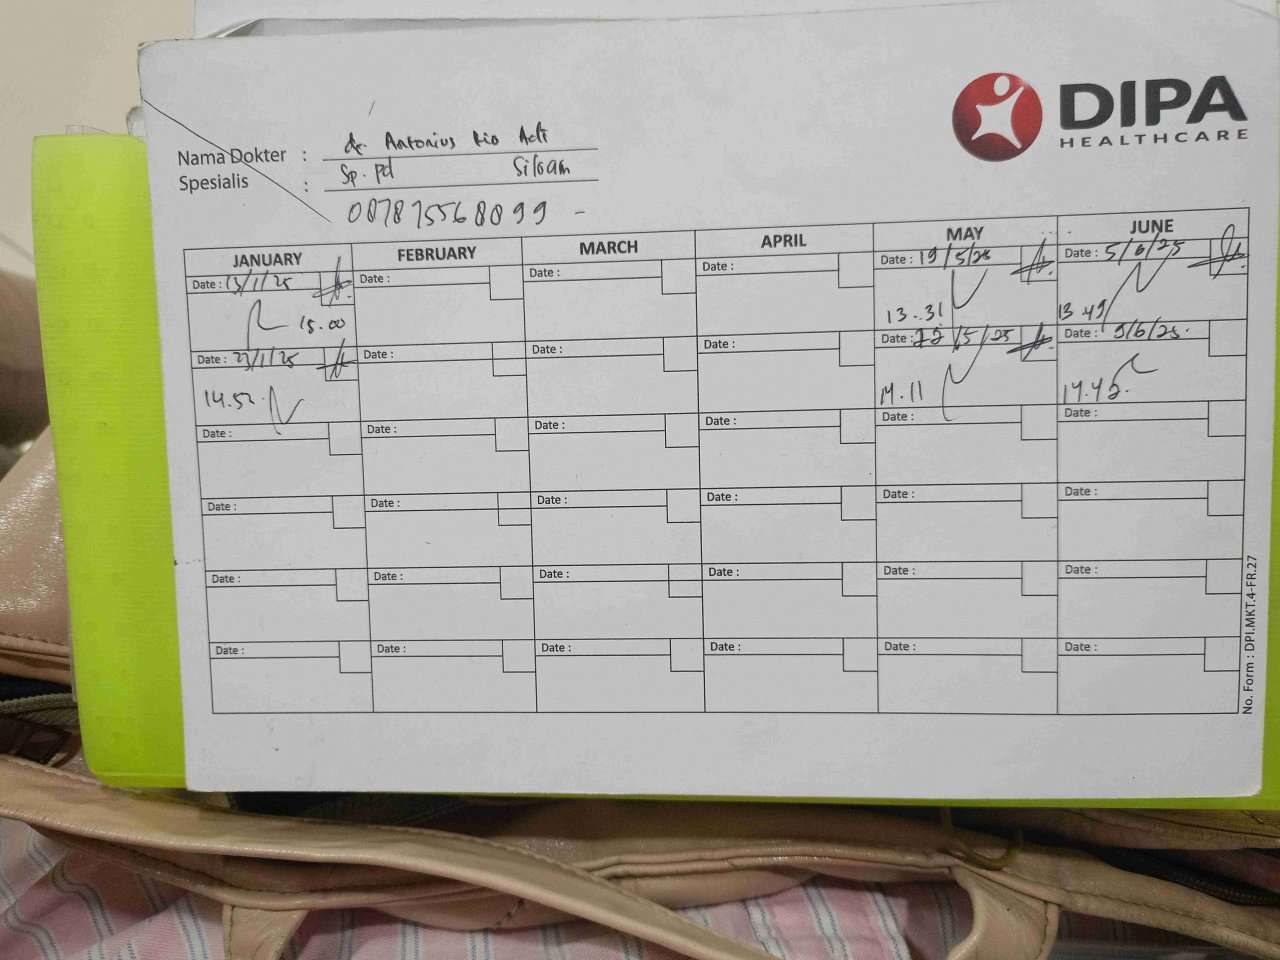 DIPA
HEALTHCARE
Nama Dokter : dr. Antonius Rio Adi
Spesialis : Sp.Pd Siloam
087875568099 -
JANUARY FEBRUARY MARCH APRIL MAY JUNE
Date : 13/1/25 Date : Date : Date : Date : 19/5/25 Date : 5/6/25
15.00 13.31 13.49
Date : 23/1/25 Date : Date : Date : Date : 22/5/25 Date : 9/6/25
14.52 14.11 14.42
Date : Date : Date : Date : Date : Date :
Date : Date : Date : Date : Date : Date :
Date : Date : Date : Date : Date : Date :
Date : Date : Date : Date : Date : Date :
No. Form : DPI.MKT.4-FR.27